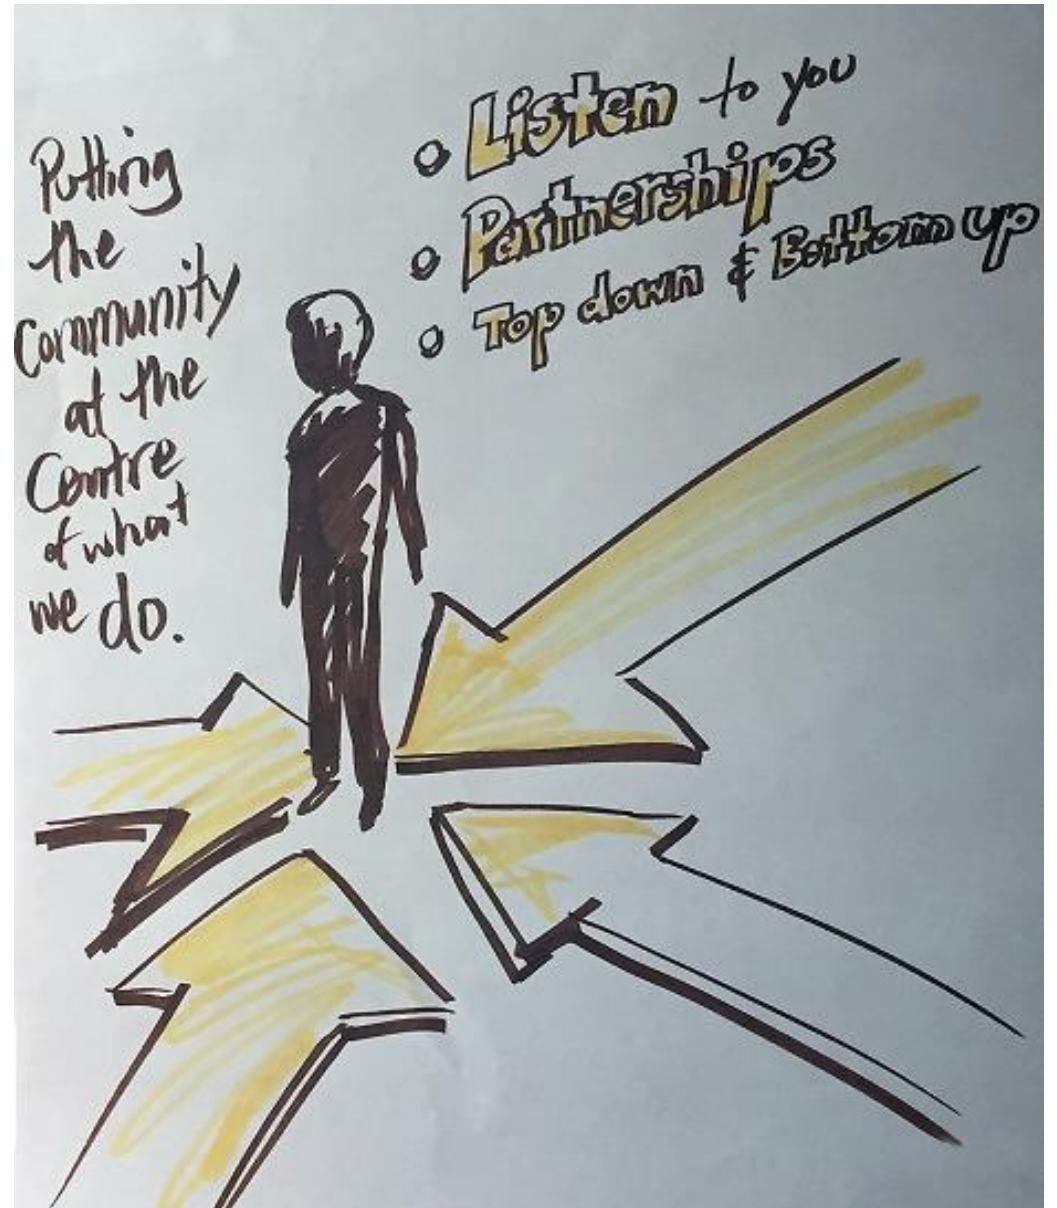 Putting
the
Community
at the
Centre
of what
we do.
• Listen to you
• Partnerships
• Top down & Bottom up